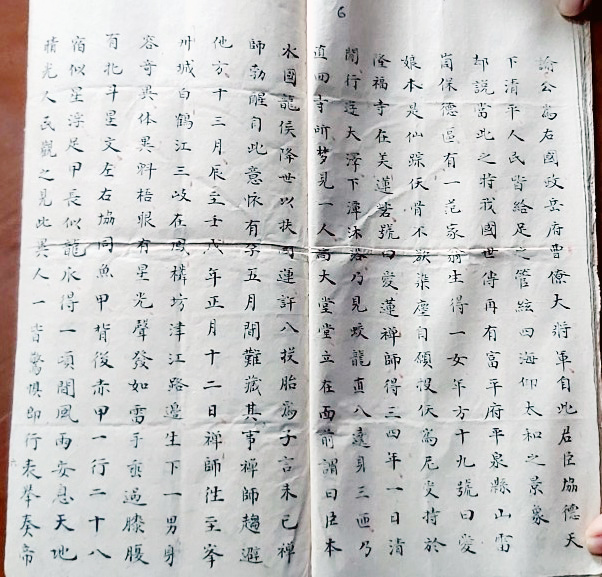 6
諭公爲右國政岳府曹僚大將軍自此君臣協德天
下清平人民皆給足之管絃四海仰太和之景象
却說當此之時我國世傳再有富平府平泉縣山雷
崗保德區有一范家翁生得一女年方十九號曰愛
娘本是仙踪仸骨不欲染塵自願投仸爲尼受持於
隆福寺在美蓮岩號曰愛蓮禪師得三四年一日清
閒行逕大澤下潭沐浴乃見蛟龍直八遶身三匝乃
直回寺听梦見一人高大堂堂立在面前謂曰臣本
水國龍侯降世以扶國連許八投胎爲子言未已禪
師勃醒自此意怀有孕五月間難藏其事禪師趨避
他方十三月辰至壬戌年正月十二日禅師往至峯
州城白鶴江三岐在鳳構坊津江路邊生下一男身
容奇異体異料梧眼有星光聲發如雷手垂過膝腹
有北斗星文左右協同魚甲背後赤甲一行二十八
宿似星浮足甲長似龍爪得一項間風雨安息天地
晴光人民觀之見此異人一皆驚惧即行表举奏帝